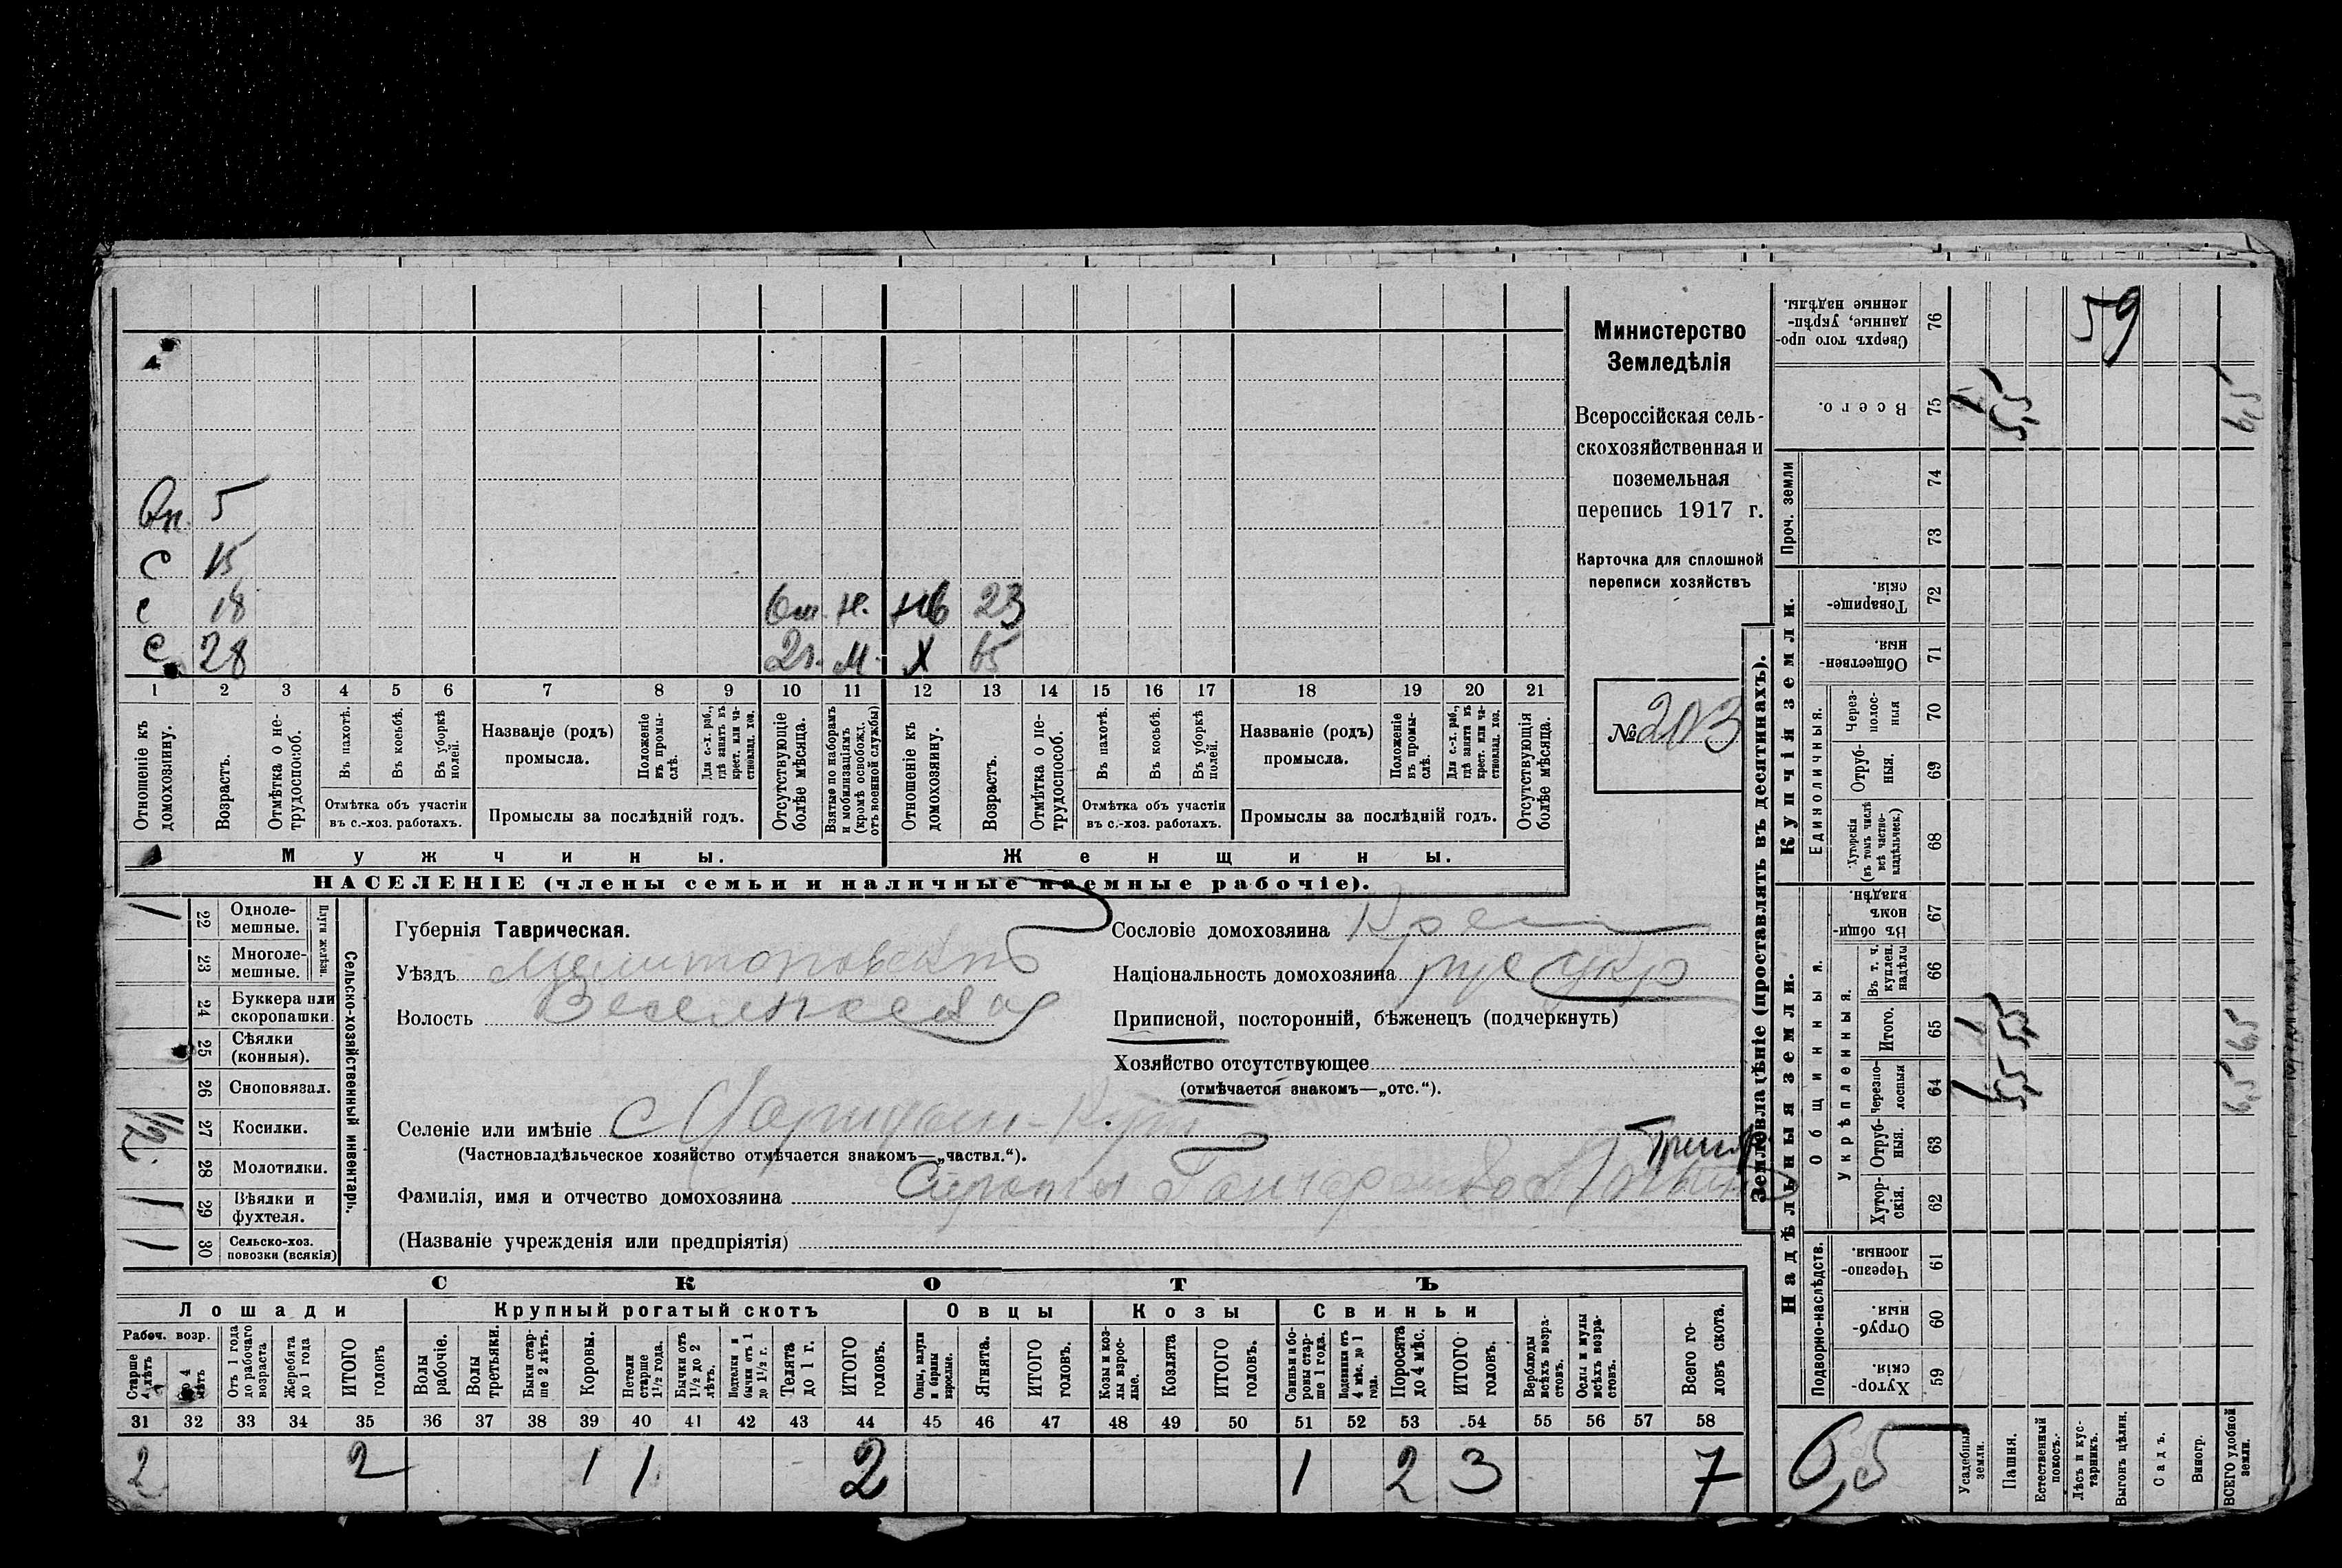 Оп. 5
с 15
с 18 От. н. нв 23
с 28 2г. м. х 65
1 2 3 4 5 6 7 8 9 10 11 12 13 14 15 16 17 18 19 20 21
Отношеніе къ домохозяину.
Возрастъ.
Отмѣтка о не-трудоспособ.
Въ пахотѣ.
Въ косьбѣ.
Въ уборкѣ полей.
Отмѣтка объ участіи въ с.-хоз. работахъ.
Названіе (родъ) промысла.
Положеніе въ промы-слѣ.
Для с.-х. раб., гдѣ занятъ въ крест. или ча-стновлад. хоз.
Промыслы за послѣдній годъ.
Отсутствующіе болѣе мѣсяца.
Взятые по наборамъ и мобилизаціямъ (кромѣ освобожд. отъ военной службы)
Отношеніе къ домохозяину.
Возрастъ.
Отмѣтка о не-трудоспособ.
Въ пахотѣ.
Въ косьбѣ.
Въ уборкѣ полей.
Отмѣтка объ участіи въ с.-хоз. работахъ.
Названіе (родъ) промысла.
Положеніе въ промы-слѣ.
Для с.-х. раб., гдѣ занята въ крест. или ча-стновлад. хоз.
Промыслы за послѣдній годъ.
Отсутствующія болѣе мѣсяца.
Мужчины.
Женщины.
НАСЕЛЕНІЕ (члены семьи и наличные наемные рабочіе).
Министерство
Земледѣлія
Всероссійская сель-
скохозяйственная и
поземельная
перепись 1917 г.
Карточка для сплошной
переписи хозяйствъ
№ 203
Сельско-хозяйственный инвентарь.
Плуги желѣзн.
1 22 Одноле-мешные.
23 Многоле-мешные.
24 Буккера или скоропашки.
25 Сѣялки (конныя).
26 Сноповязал.
1/2 27 Косилки.
28 Молотилки.
1 29 Вѣялки и фухтеля.
1 30 Сельско-хоз. повозки (всякія)
Губернія Таврическая.
Уѣздъ Мелитопольскій
Волость Веселовская
Сословіе домохозяина Крест
Національность домохозяина рус укр
Приписной, посторонній, бѣженецъ (подчеркнуть)
Хозяйство отсутствующее
(отмѣчается знакомъ—„отс.“).
Селеніе или имѣніе с
(Частновладѣльческое хозяйство отмѣчается знакомъ—„частвл.“).
Фамилія, имя и отчество домохозяина Сироты Гончаренко
(Названіе учрежденія или предпріятія)
СКОТЪ
Лошади
Крупный рогатый скотъ
Овцы
Козы
Свиньи
Рабоч. возр.
Старше 4 лѣтъ
До 4 лѣтъ
Отъ 1 года до рабочаго возраста
Жеребята до 1 года
ИТОГО головъ
Волы рабочіе.
Волы третьяки.
Быки стар-ше 2 лѣтъ.
Коровы.
Нетели старше 1½ года.
Бычки отъ 1½ до 2 лѣтъ.
Подтелки и бычки отъ 1 до 1½ г.
Телята до 1 г.
ИТОГО головъ.
Овцы, валухи и бараны взрослые.
Ягнята.
ИТОГО головъ.
Козы и коз-лы взрос-лые.
Козлята
ИТОГО головъ.
Свиньи и бо-ровы стар-ше 1 года.
Подсвинки отъ 4 мѣс. до 1 года.
Поросята до 4 мѣс.
ИТОГО головъ.
Верблюды всѣхъ возра-стовъ.
Ослы и мулы всѣхъ возра-стовъ.
Всего го-ловъ скота.
31 32 33 34 35 36 37 38 39 40 41 42 43 44 45 46 47 48 49 50 51 52 53 54 55 56 57 58
2 2 1 1 2 1 2 3 7
Землевладѣніе (проставлять въ десятинахъ).
Надѣльныя земли.
Купчія земли.
Проч. земли
Подворно-наслѣдств.
Общинныя.
Укрѣпленныя.
Единоличныя.
Сверхъ того про-данные, укрѣп-ленные надѣлы. 76 59
Всего. 75 1 5,5 6,5
74
73
Товарище-скія. 72
Обществен-ныя 71
Через-полос-ныя 70
Отруб-ныя. 69
Хуторскія (въ томъ числѣ всѣ частно-владѣльческ.) 68
Въ общи-номъ владѣн. 67
Въ т. ч. куплен. надѣлы 66
Итого. 65 1 5,5 6,5
Черезпо-лосныя 64 1 5,5 6,5
Отруб-ныя. 63
Хутор-скія. 62
Черезпо-лосныя. 61
Отруб-ныя. 60
Хутор-скія 59
6,5
Усадебныя земли.
Пашня.
Естественный покосъ.
Лѣсъ и кус-тарникъ.
Выгонъ цѣлин.
Садъ.
Виногр.
ВСЕГО удобной земли.